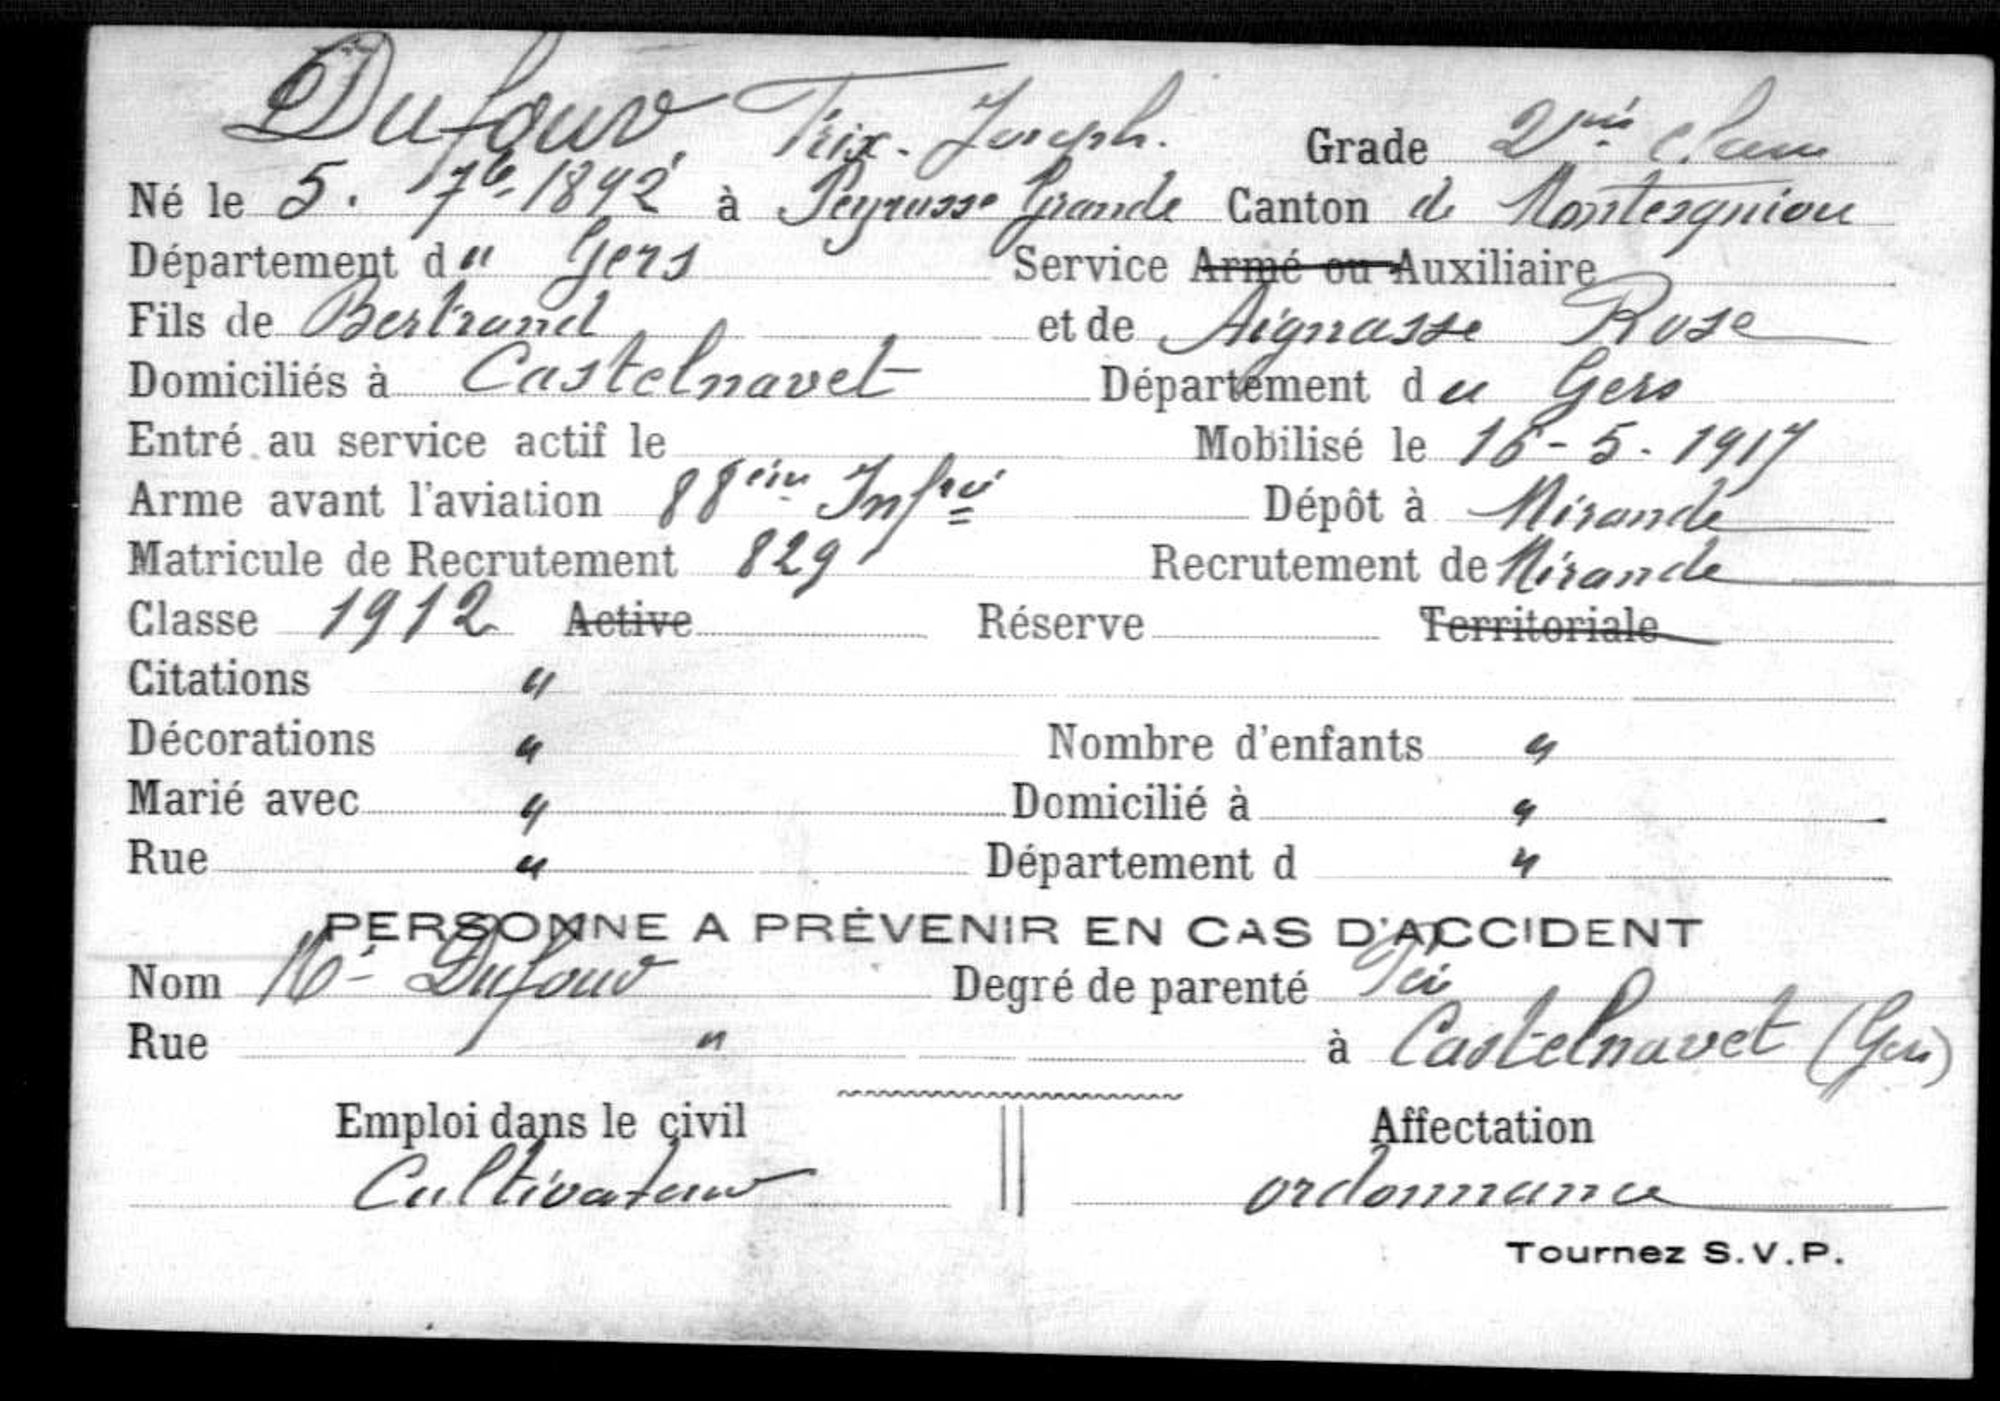 Dufour, Prix-Joseph. Grade 2ème classe
Né le 5. 7bre 1892 à Peyrusse Grande Canton de Montesquiou
Département du Gers Service Armé ou Auxiliaire
Fils de Bertrand et de Aignasse Rose
Domiciliés à Castelnavet Département du Gers
Entré au service actif le Mobilisé le 16-5-1917
Arme avant l'aviation 88ème Infrie Dépôt à Mirande
Matricule de Recrutement 829 Recrutement de Mirande
Classe 1912 Active Réserve Territoriale
Citations "
Décorations " Nombre d'enfants "
Marié avec " Domicilié à "
Rue " Département d "
PERSONNE A PRÉVENIR EN CAS D'ACCIDENT
Nom Mr Dufour Degré de parenté Père
Rue " à Castelnavet (Gers)
Emploi dans le civil Affectation
Cultivateur ordonnance
Tournez S.V.P.